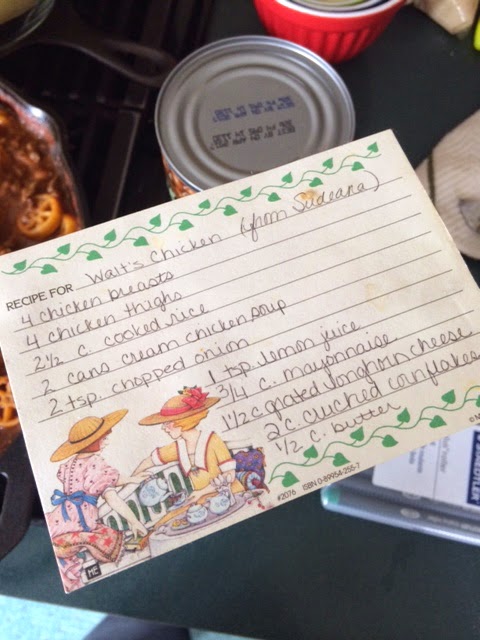 RECIPE FOR Walt's Chicken (from Sudeana)
4 chicken breasts
4 chicken thighs
2½ c. cooked rice
2 cans cream chicken soup
2 tsp. chopped onion
1 tsp. lemon juice
3/4 c. mayonnaise
1½ c grated longhorn cheese
2 c. cruched cornflakes
½ c. butter
#2076 ISBN 0-89954-255-7
ME